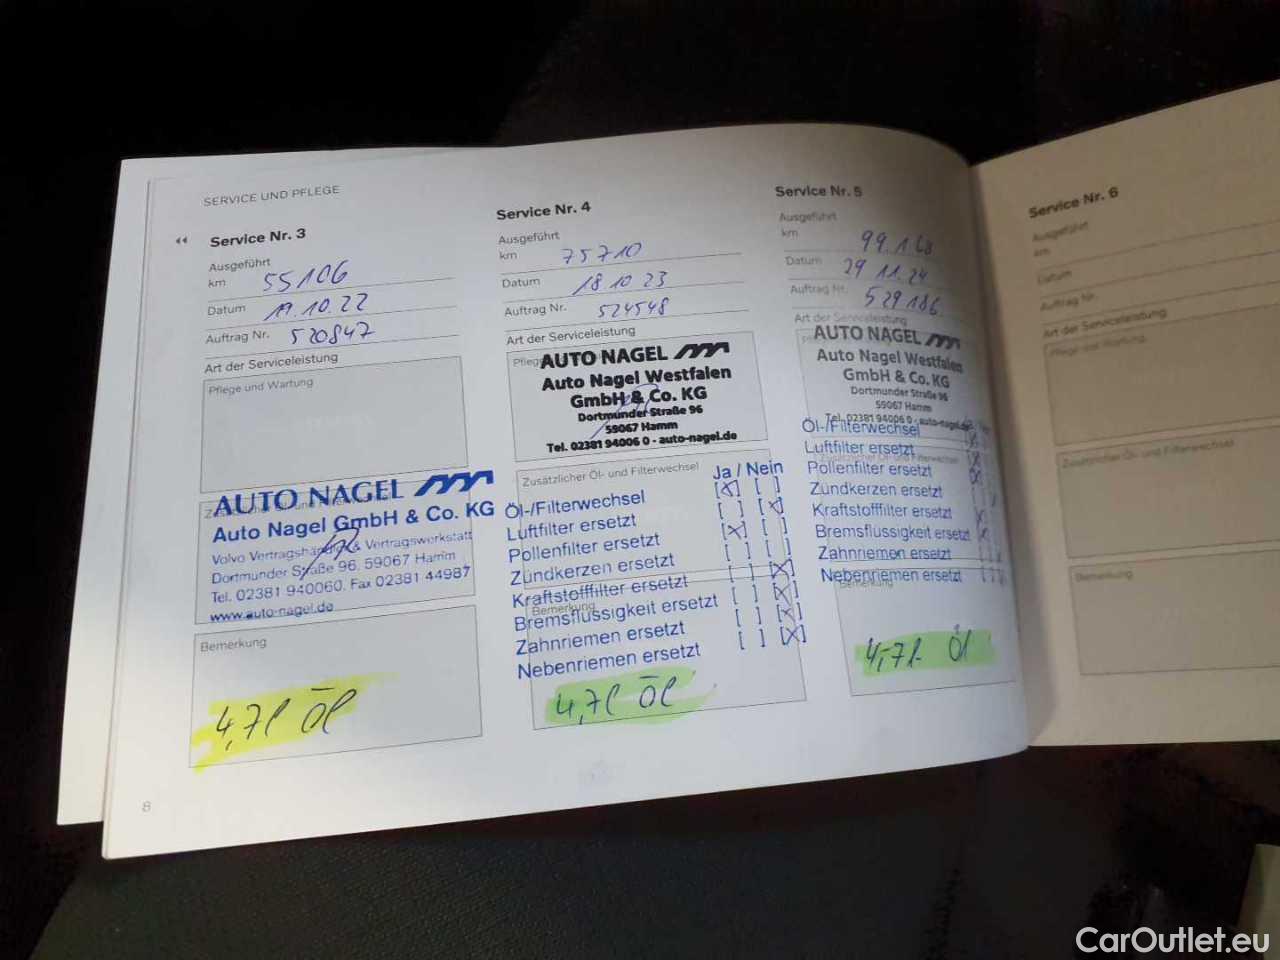 SERVICE UND PFLEGE
Service Nr. 3
Ausgeführt
km 55106
Datum 19.10.22
Auftrag Nr. 520847
Art der Serviceleistung
Pflege und Wartung
AUTO NAGEL
Auto Nagel GmbH & Co. KG
Volvo Vertragshändler & Vertragswerkstatt
Dortmunder Straße 96, 59067 Hamm
Tel. 02381 940060, Fax 02381 44987
www.auto-nagel.de
Bemerkung
4,7l Öl
8
Service Nr. 4
Ausgeführt
km 75710
Datum 18.10.23
Auftrag Nr. 524548
Art der Serviceleistung
AUTO NAGEL
Auto Nagel Westfalen
GmbH & Co. KG
Dortmunder Straße 96
59067 Hamm
Tel. 02381 94006 0 - auto-nagel.de
Zusätzlicher Öl- und Filterwechsel
Ja / Nein
Öl-/Filterwechsel [X] [ ]
Luftfilter ersetzt [ ] [X]
Pollenfilter ersetzt [X] [ ]
Zündkerzen ersetzt [ ] [ ]
Kraftstofffilter ersetzt [ ] [X]
Bremsflüssigkeit ersetzt [ ] [X]
Zahnriemen ersetzt [ ] [X]
Nebenriemen ersetzt [ ] [X]
Bemerkung
4,7l Öl
Service Nr. 5
Ausgeführt
km 99.168
Datum 29 11.24
Auftrag Nr. 529186
Art der Serviceleistung
AUTO NAGEL
Auto Nagel Westfalen
GmbH & Co. KG
Dortmunder Straße 96
59067 Hamm
Tel. 02381 94006 0 - auto-nagel.de
Öl-/Filterwechsel
Luftfilter ersetzt
Pollenfilter ersetzt
Zündkerzen ersetzt
Kraftstofffilter ersetzt
Bremsflüssigkeit ersetzt
Zahnriemen ersetzt
Nebenriemen ersetzt
Bemerkung
4,7l Öl
Service Nr. 6
Ausgeführt
km
Datum
Auftrag Nr.
Art der Serviceleistung
Pflege und Wartung
Zusätzlicher Öl- und Filterwechsel
Bemerkung
CarOutlet.eu